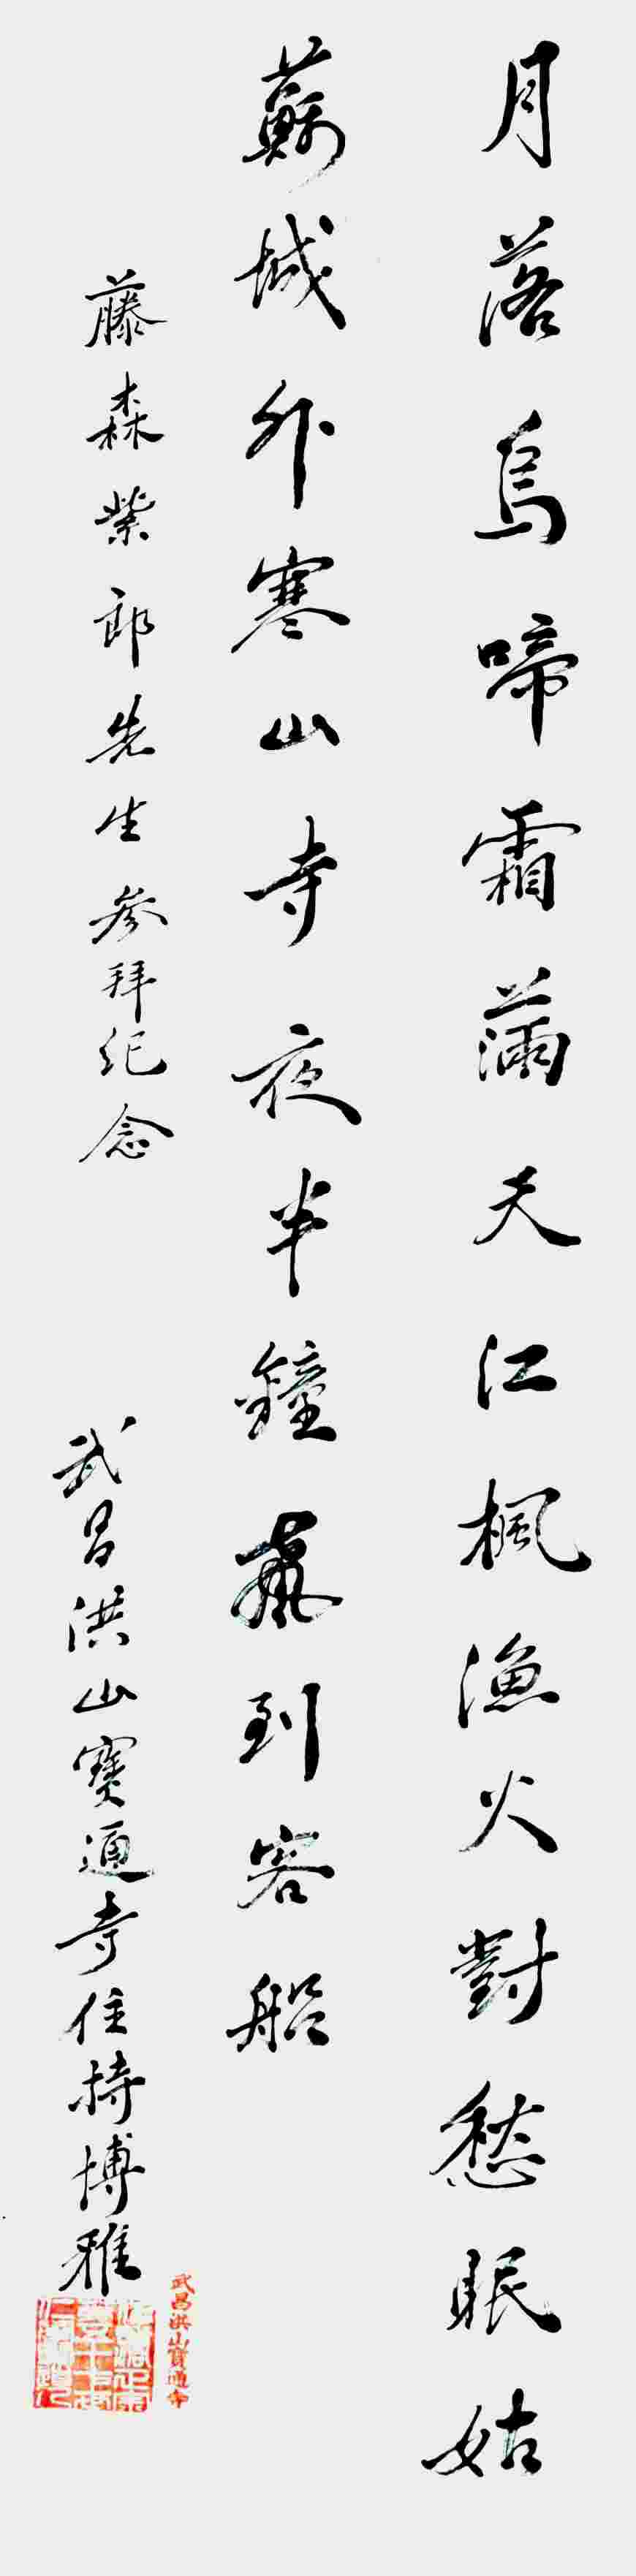 月落烏啼霜滿天江楓漁火對愁眠姑
蘇城外寒山寺夜半鐘聲到客船
藤森紫郎先生參拜纪念
武昌洪山寶通寺住持博雅
武昌洪山寶通寺